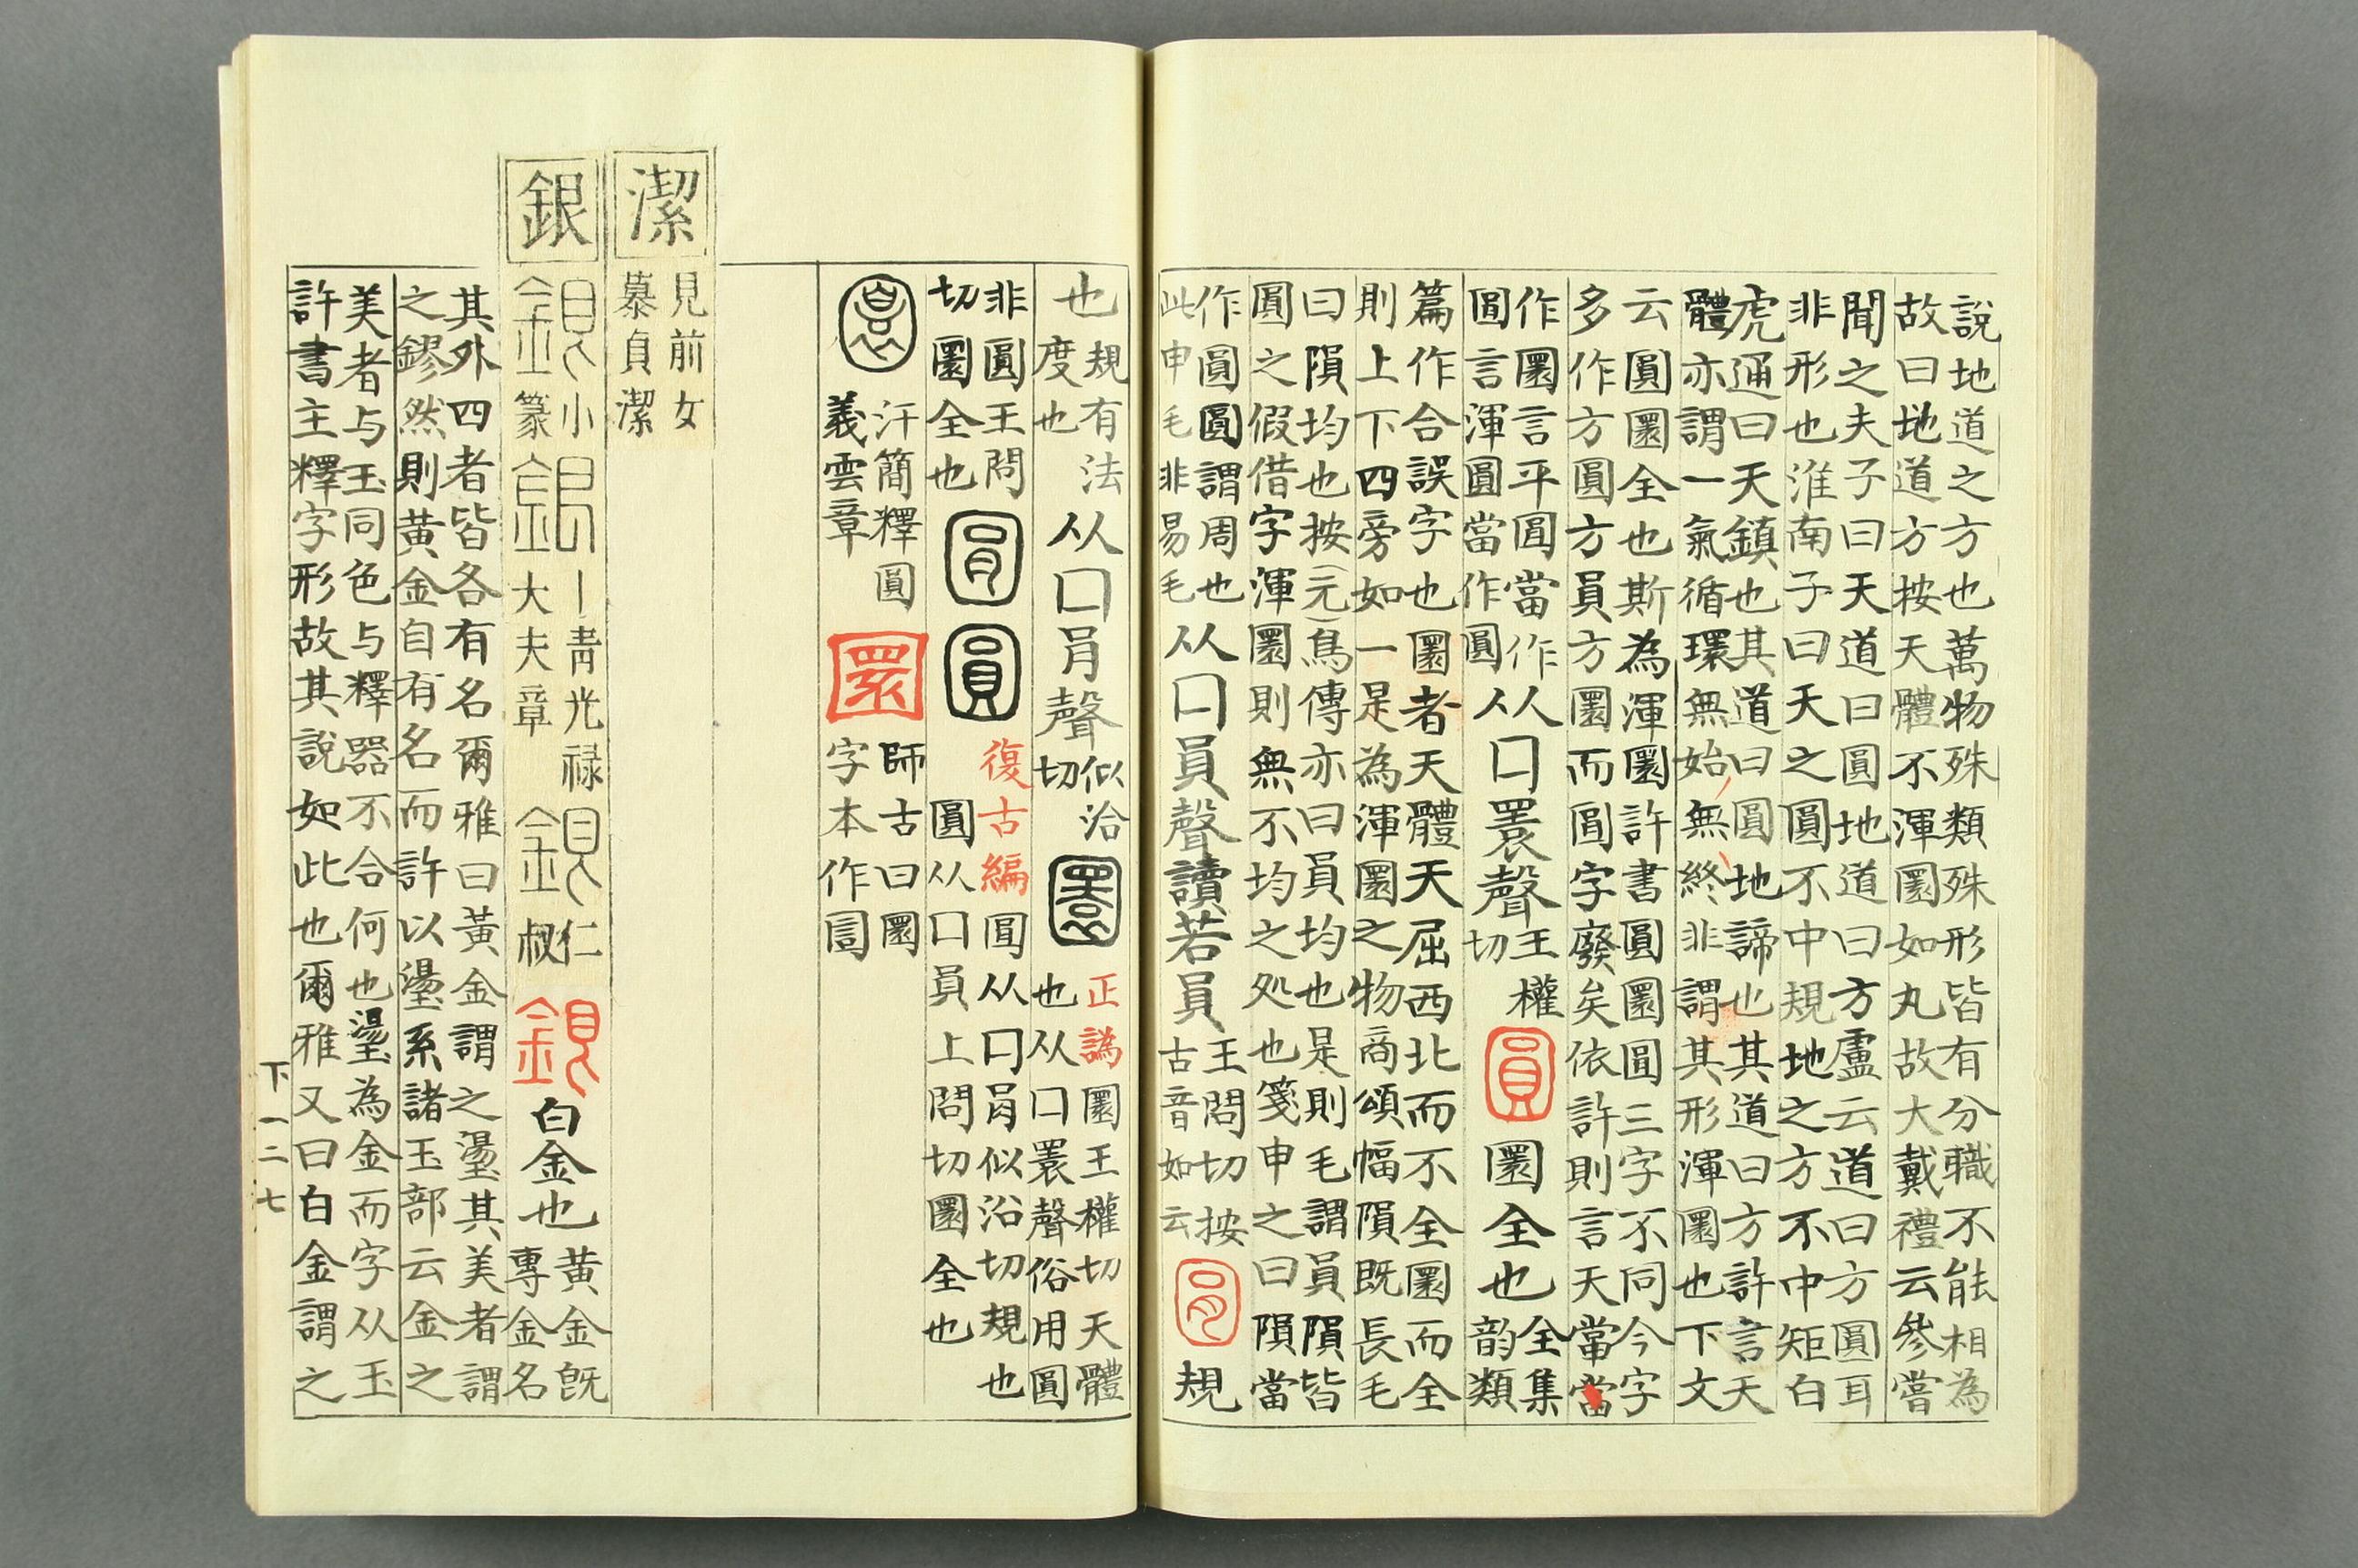 說地道之方也萬物殊類殊形皆有分職不能相為
故曰地道方按天體不渾圜如丸故大戴禮云參嘗
聞之夫子曰天道曰圓地道曰方盧云道曰方圓耳
非形也淮南子曰天之圓不中規地之方不中矩白
虎通曰天鎮也其道曰圓地諦也其道曰方許言天
體亦謂一氣循環無始無終非謂其形渾圜也下文
云圓圜全也斯為渾圜許書圓圜圎三字不同今字
多作方圓方員方圜而圎字廢矣依許則言天當當
作圜言平圎當作
圎言渾圓當作圓
从囗瞏聲
王權
切
圓
圜全也
全集
韵類
篇作合誤字也圜者天體天屈西北而不全圜而全
則上下四旁如一是為渾圜之物商頌幅隕既長毛
曰隕均也按(元)鳥傳亦曰員均也是則毛謂員隕皆
圓之假借字渾圜則無不均之処也箋申之曰隕當
作圓圓謂周也
此申毛非易毛
从囗員聲讀若員
王問切按
古音如云
圎
規
也
規有法
度也
从囗肙聲
似沿
切
圜
正譌
圜王權切天體
也从囗瞏聲俗用圓
非圓王問
切圜全也
圎
圓
復古編
圎从囗肙似沿切規也
圓从囗員上問切圜全也
圜
汗簡釋圓
義雲章
圜
師古曰圜
字本作圁
潔
見前女
慕貞潔
銀
銀
小
篆
銀
丨青光禄
大夫章
銀
仁
叔
銀
白金也
黃金旣
專金名
其外四者皆各有名爾雅曰黃金謂之璗其美者謂
之鏐然則黃金自有名而許以璗系諸玉部云金之
美者与玉同色与釋器不合何也璗為金而字从玉
許書主釋字形故其說如此也爾雅又曰白金謂之
下一二七